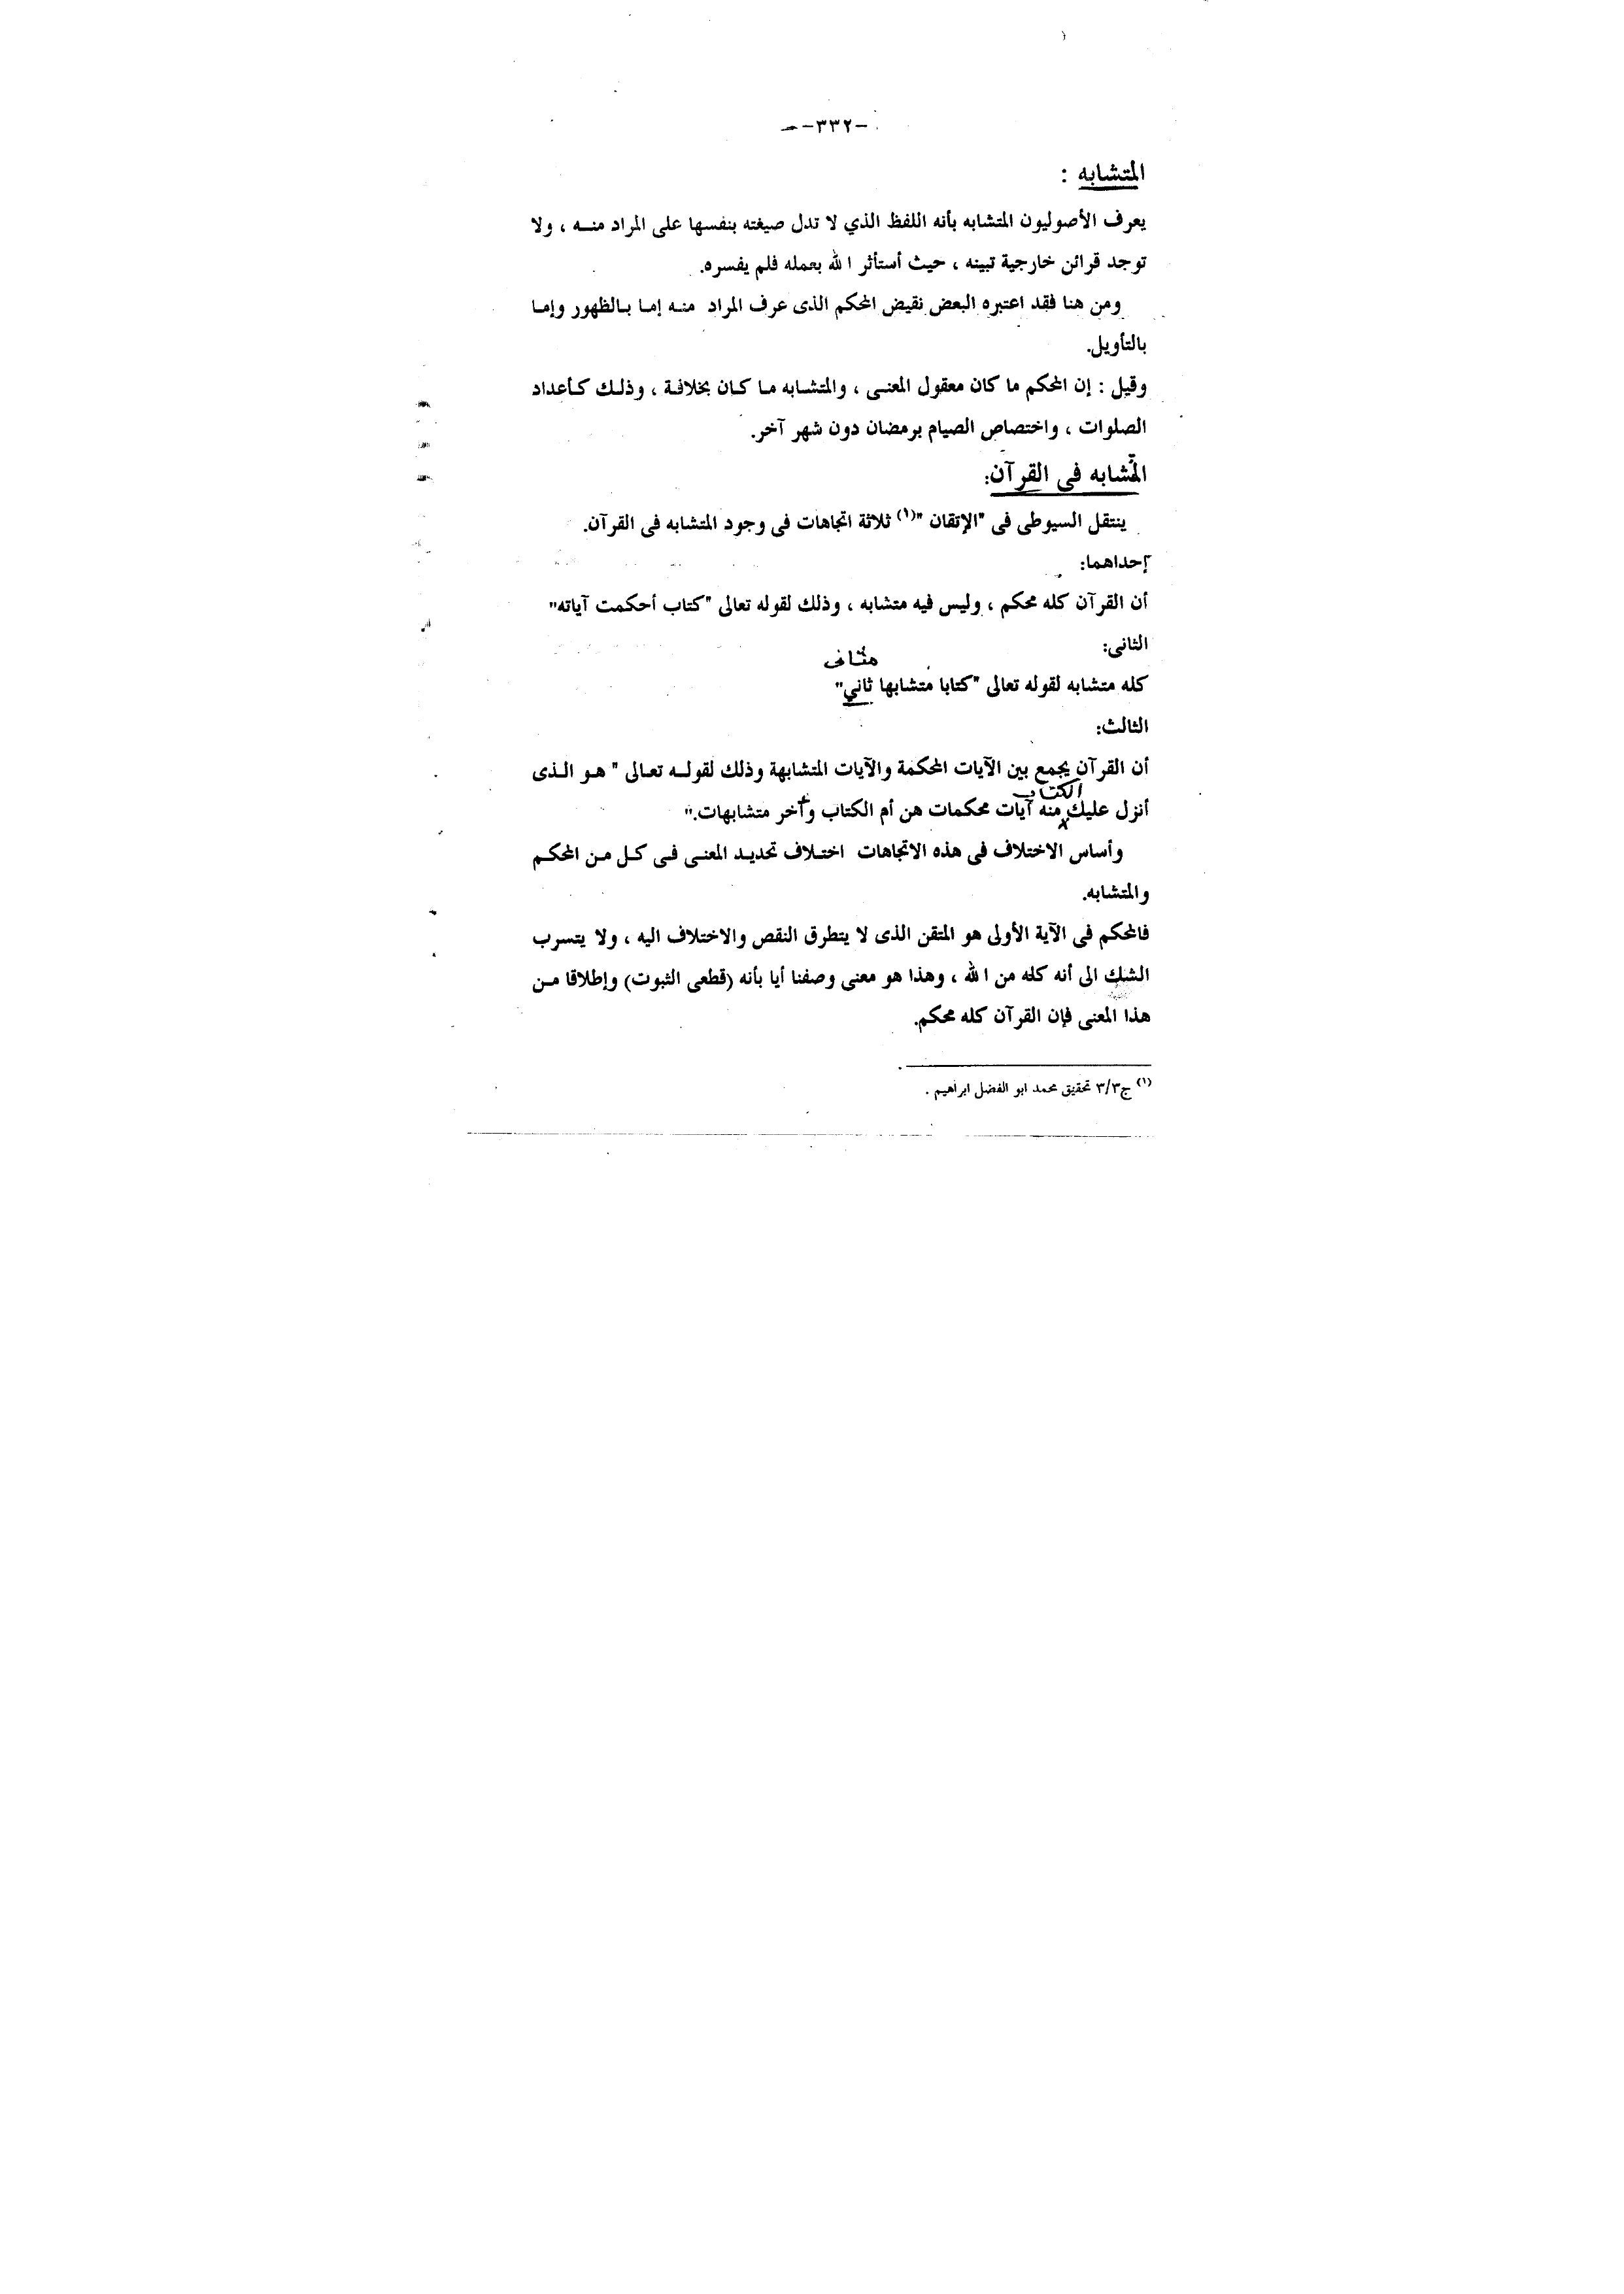 -٣٣٢-
المتشابه :
يعرف الأصوليون المتشابه بأنه اللفظ الذي لا تدل صيغته بنفسها على المراد منه ، ولا
توجد قرائن خارجية تبينه ، حيث أستأثر الله بعمله فلم يفسره.
ومن هنا فقد اعتبره البعض نقيض المحكم الذى عرف المراد منه إما بالظهور وإما
بالتأويل.
وقيل : إن المحكم ما كان معقول المعنى ، والمتشابه ما كان بخلافة ، وذلك كأعداد
الصلوات ، واختصاص الصيام برمضان دون شهر آخر.
المتشابه فى القرآن:
ينتقل السيوطى فى "الإتقان "(١) ثلاثة اتجاهات فى وجود المتشابه فى القرآن.
إحداهما:
أن القرآن كله محكم ، وليس فيه متشابه ، وذلك لقوله تعالى "كتاب أحكمت آياته"
الثانى:
مثانى
كله متشابه لقوله تعالى "كتابا متشابها ثاني"
الثالث:
أن القرآن يجمع بين الآيات المحكمة والآيات المتشابهة وذلك لقوله تعالى " هو الذى
الكتاب
أنزل عليك منه آيات محكمات هن أم الكتاب وأخر متشابهات."
وأساس الاختلاف فى هذه الاتجاهات اختلاف تحديد المعنى فى كل من المحكم
والمتشابه.
فالمحكم فى الآية الأولى هو المتقن الذى لا يتطرق النقص والاختلاف اليه ، ولا يتسرب
الشك الى أنه كله من الله ، وهذا هو معنى وصفنا أيا بأنه (قطعى الثبوت) وإطلاقا من
هذا المعنى فإن القرآن كله محكم.
(١) ج٣/٣ تحقيق محمد ابو الفضل ابراهيم .